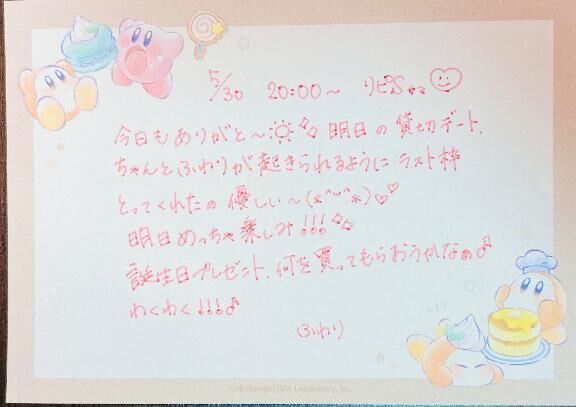 5/30 20:00〜 リピSさま
今日もありがと〜 明日の貸切デート、
ちゃんとふわりが起きられるように ラスト枠
とってくれたの優しい〜(*^ω^*)♡♡
明日めっちゃ楽しみ!!!
誕生日プレゼント、何を買ってもらおうかなぁ♪
わくわく!!!♪
(ふわり)
©Nintendo / HAL Laboratory, Inc.